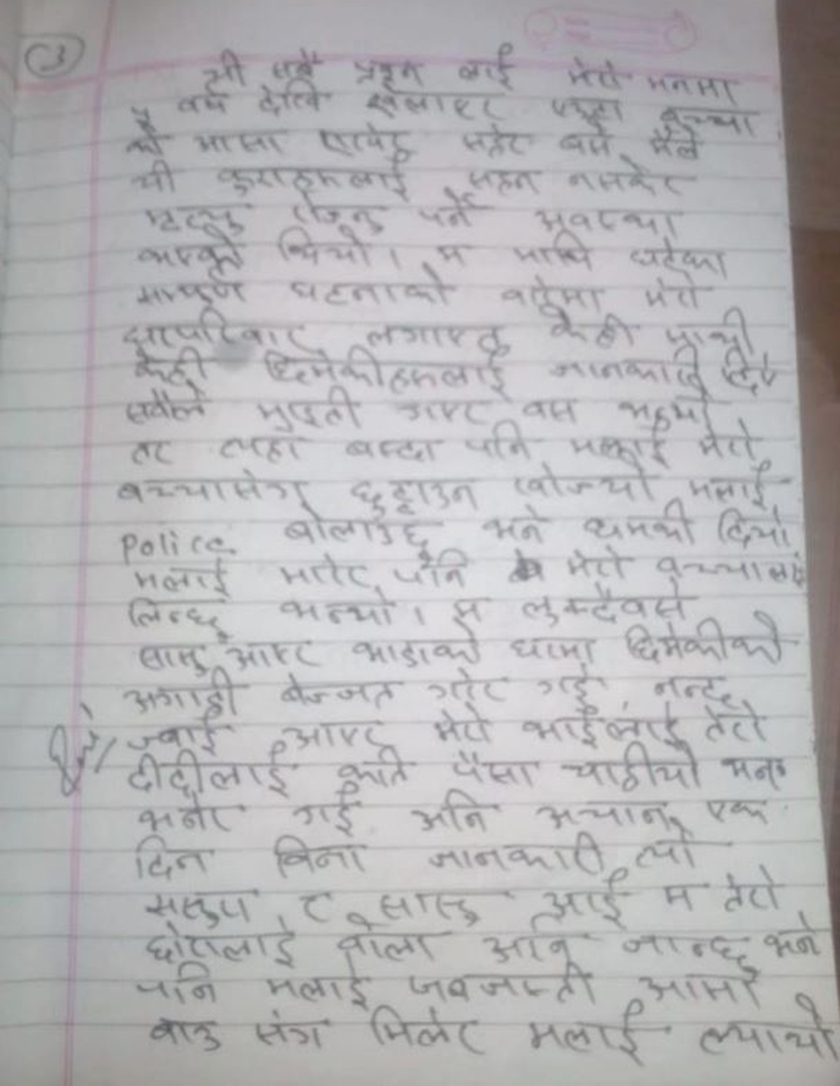 3
यी सबै प्रश्न लाई मेरो मनमा
५ वर्ष देखि खेलाएर एउटा बच्चा
को आसा सहेर बसे मैले
यी कुराहरूलाई सहन नसकेर
मृत्यु रोज्नु पर्ने अवस्था
भएको थियो। म माथि घटेका
सम्पुर्ण घटनाको बारेमा मेरो
घरपरिवार लगाएत केही साथी
केही छिमेकीहरूलाई जानकारी दिए
सबैले भुइती गएर बस भन्नुभयो
तर त्यहा बस्दा पनि मलाई मेरो
बच्चासंग छुट्टाउन खोज्यो मलाई
Police बोलाउछु भने धम्की दियो
मलाई मारेर पनि मेरो बच्चा
लिन्छु भन्यो। म लुक्दैबसे
सासु आएर भाडाको घरमा छिमेकीको
अगाडी बेज्जत गरेर गई, नन्द
ज्वाई आएर मेरो भाईलाई तेरो
दीदीलाई कति पैसा चाहीयो भन
भनेर गई अनि अचानक एक
दिन बिना जानकारी त्यो
र सासु आई म तेरो
छोरालाई बोला अनि जान्छु भने
पनि मलाई जबजस्ती आमा
बाउ संग मिलेर मलाई ल्यायो